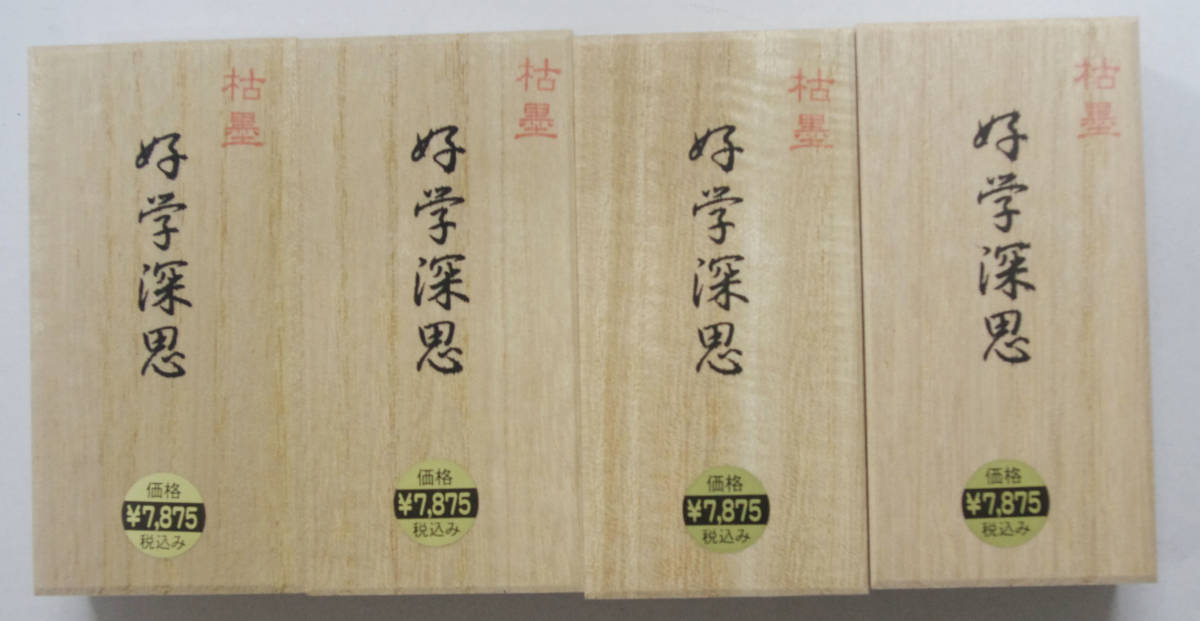 枯墨
好学深思
価格
¥7,875
税込み
枯墨
好学深思
価格
¥7,875
税込み
枯墨
好学深思
価格
¥7,875
税込み
枯墨
好学深思
価格
¥7,875
税込み